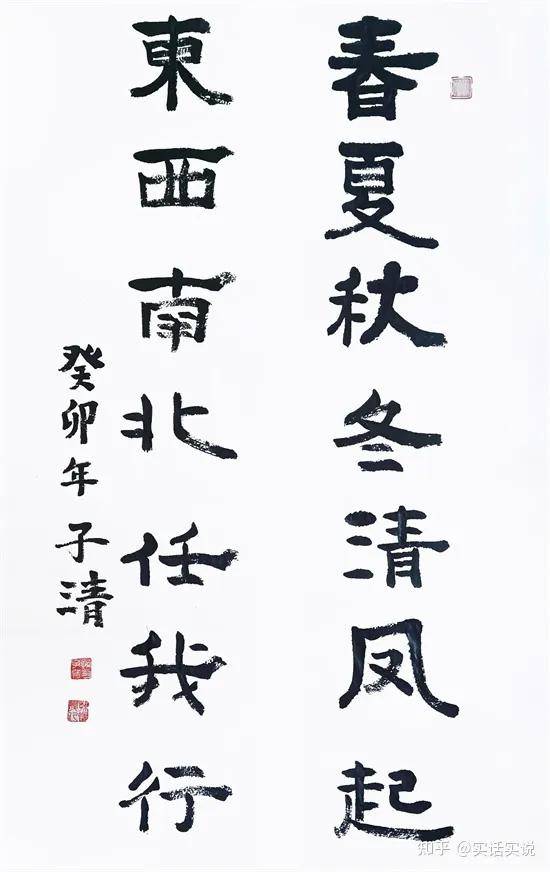 春夏秋冬清凤起
東西南北任我行
癸卯年子清
知乎 @实话实说